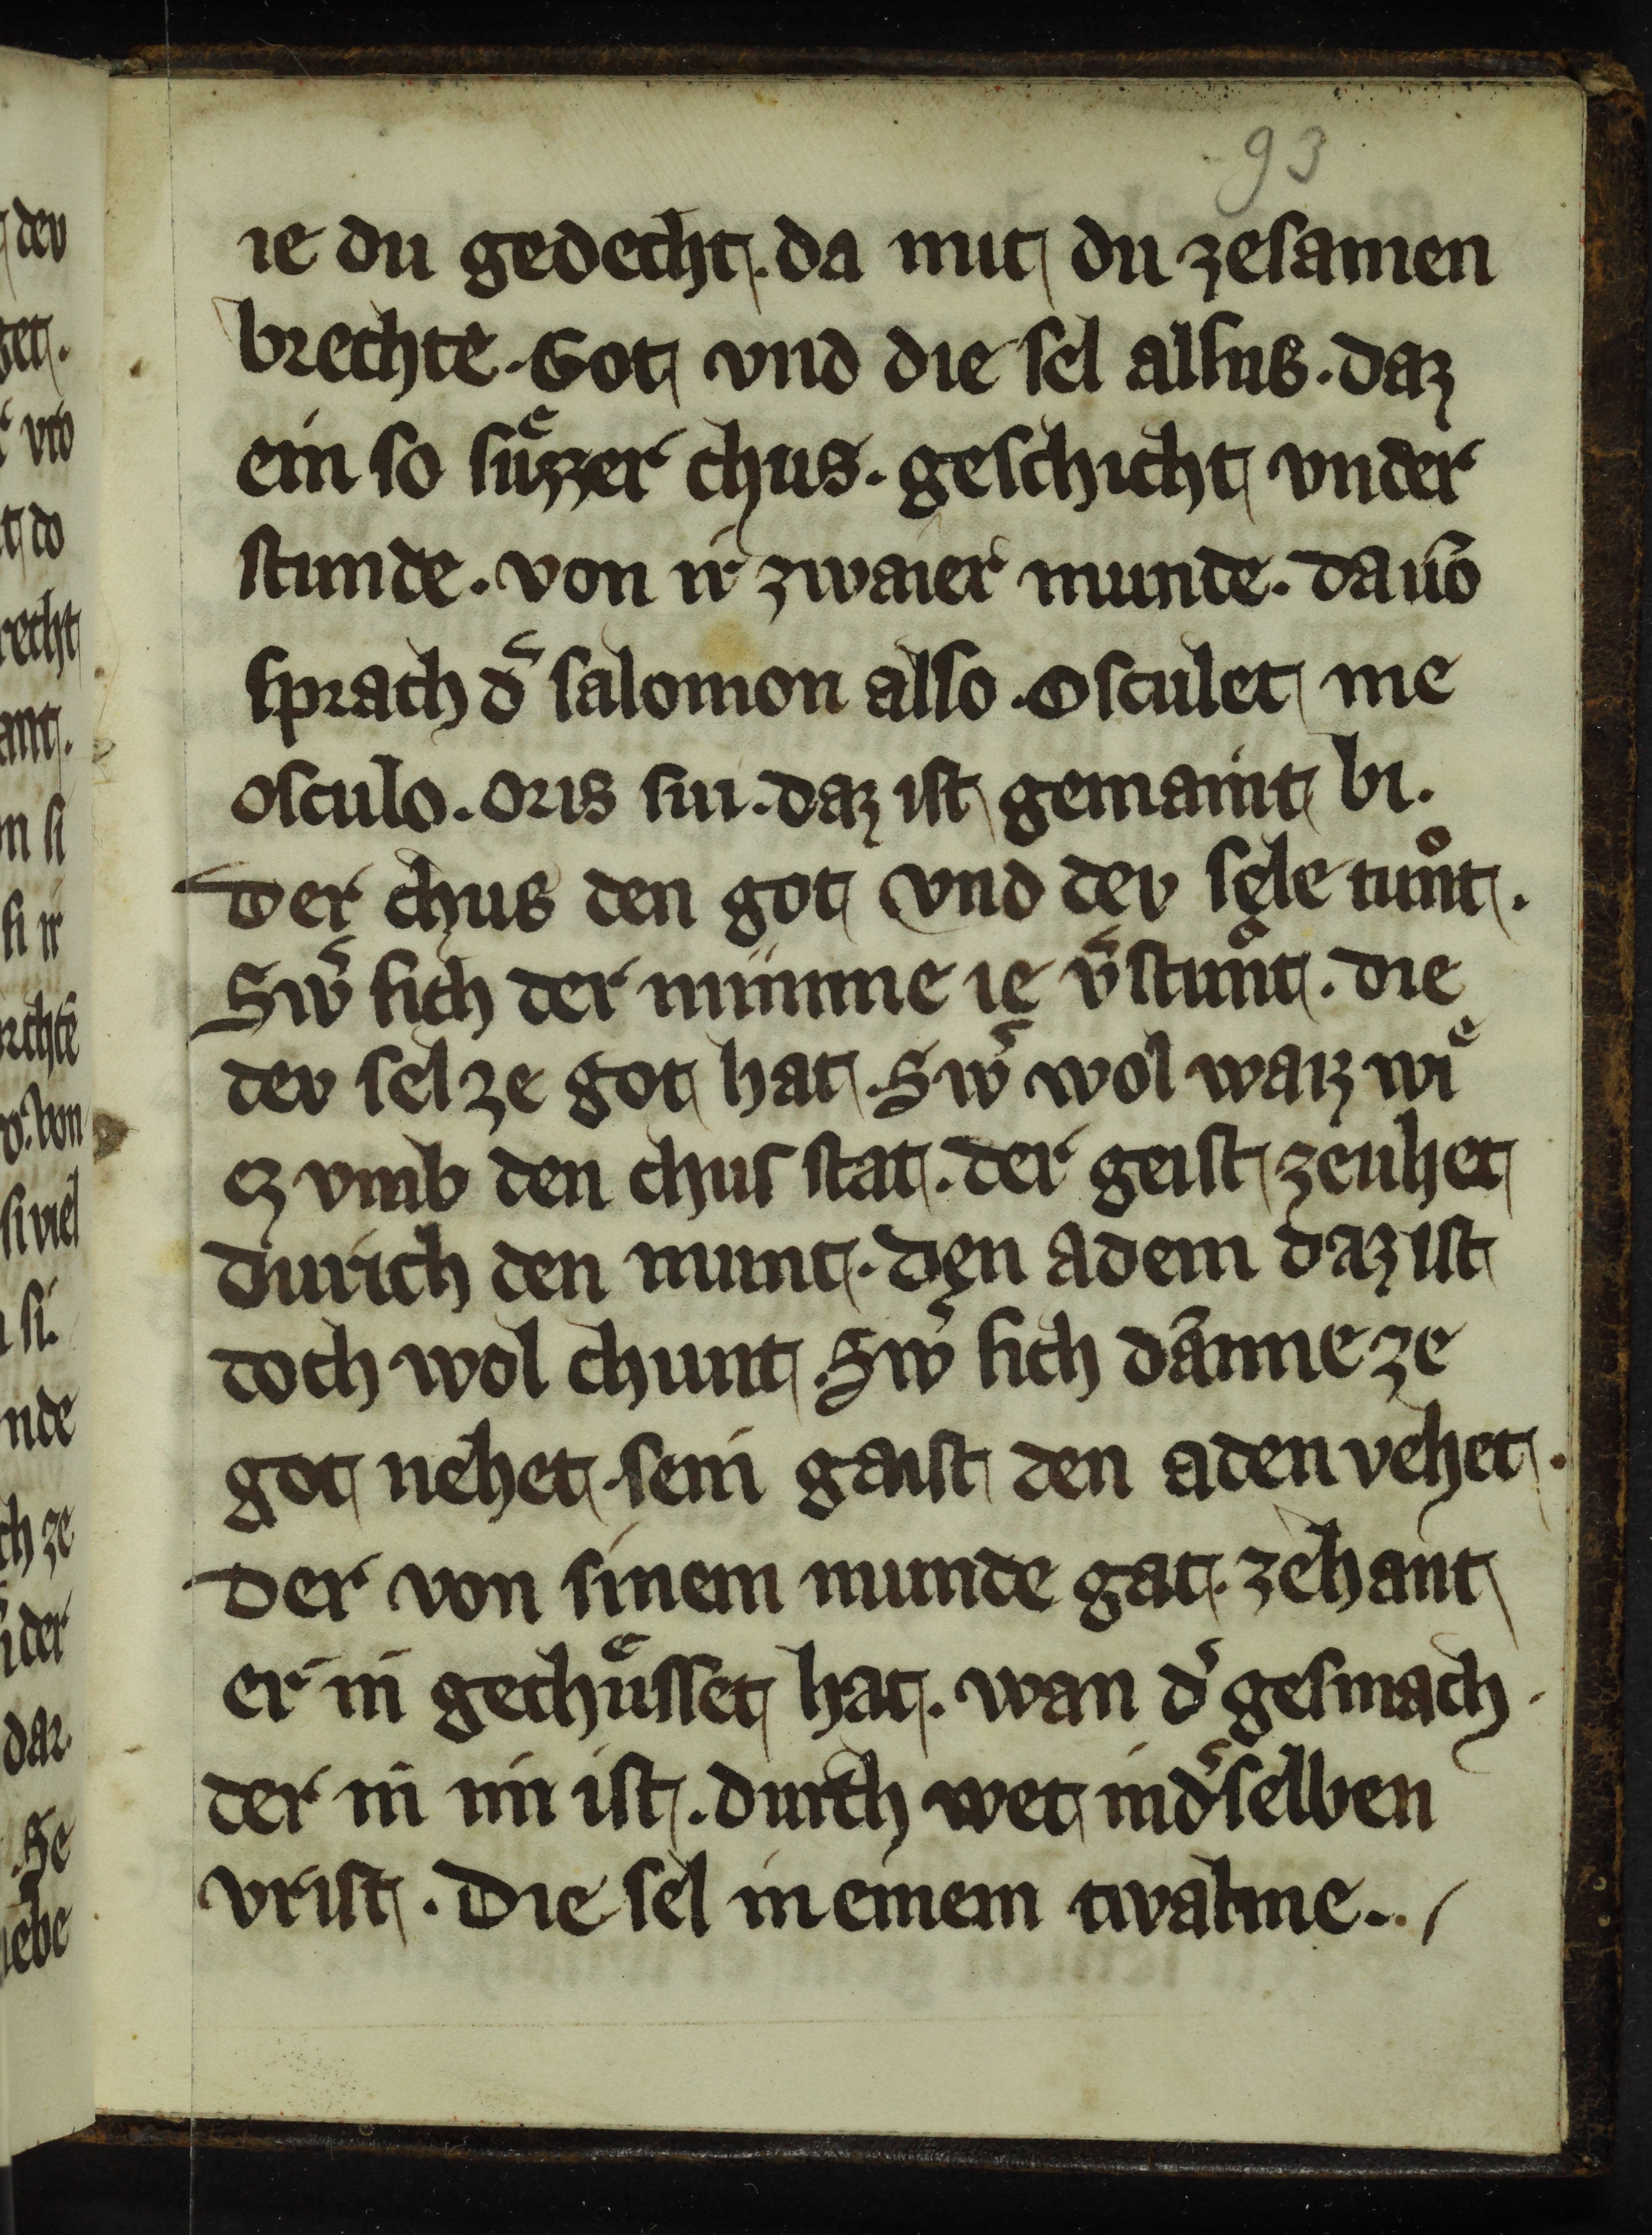 93
ie du gedecht. da mit du zesamen
brechte. Got vnd die sel alsus. daz
ein so suͤzzer chus. geschicht vnder
stunde. von ir zwaier munde. dauō
sprach d͛ salomon also. Osculet me
osculo. oris sui. daz ist gemaint bi.
Der chus den got vnd dev sele tuͦnt.
Sw͛ sich der minne ie v͛stuͦnt. die
dev sel ze got hat. Sw͛ wol waiz wiͤ
ez vmb den chus stat. der geist zeuhet
durich den munt. den adem daz ist
doch wol chunt. Sw͛ sich dānne ze
got nehet. sein gaist den aden vehet.
Der von sinem munde gat. zehant
er in gechuͤsset hat. wan d͛ gesmach.
der in im ist. durch wet in d͛ selben
vrist. Die sel in einem twalme..